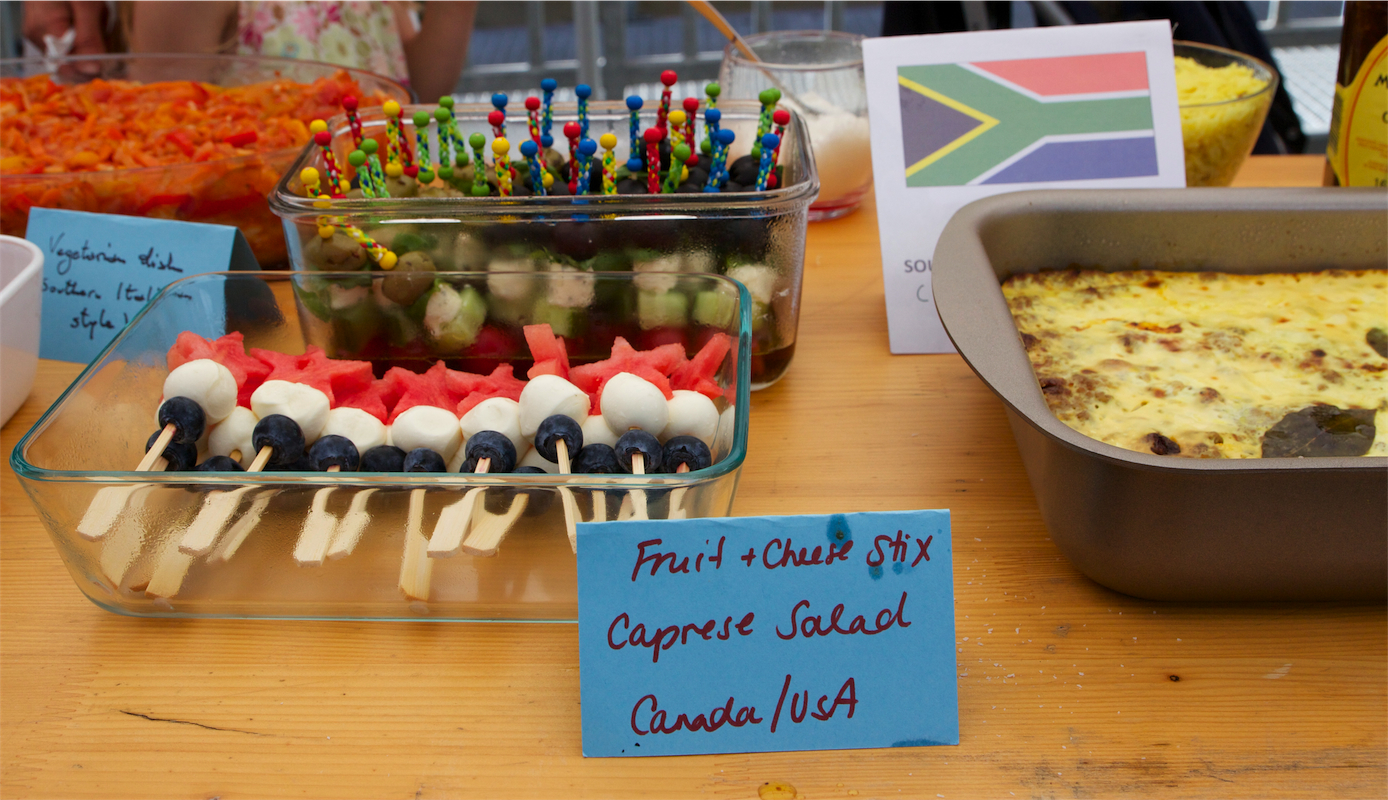 Vegetarian dish
Southern Italian
style!
SOU
C
Fruit + Cheese Stix
Caprese Salad
Canada/USA